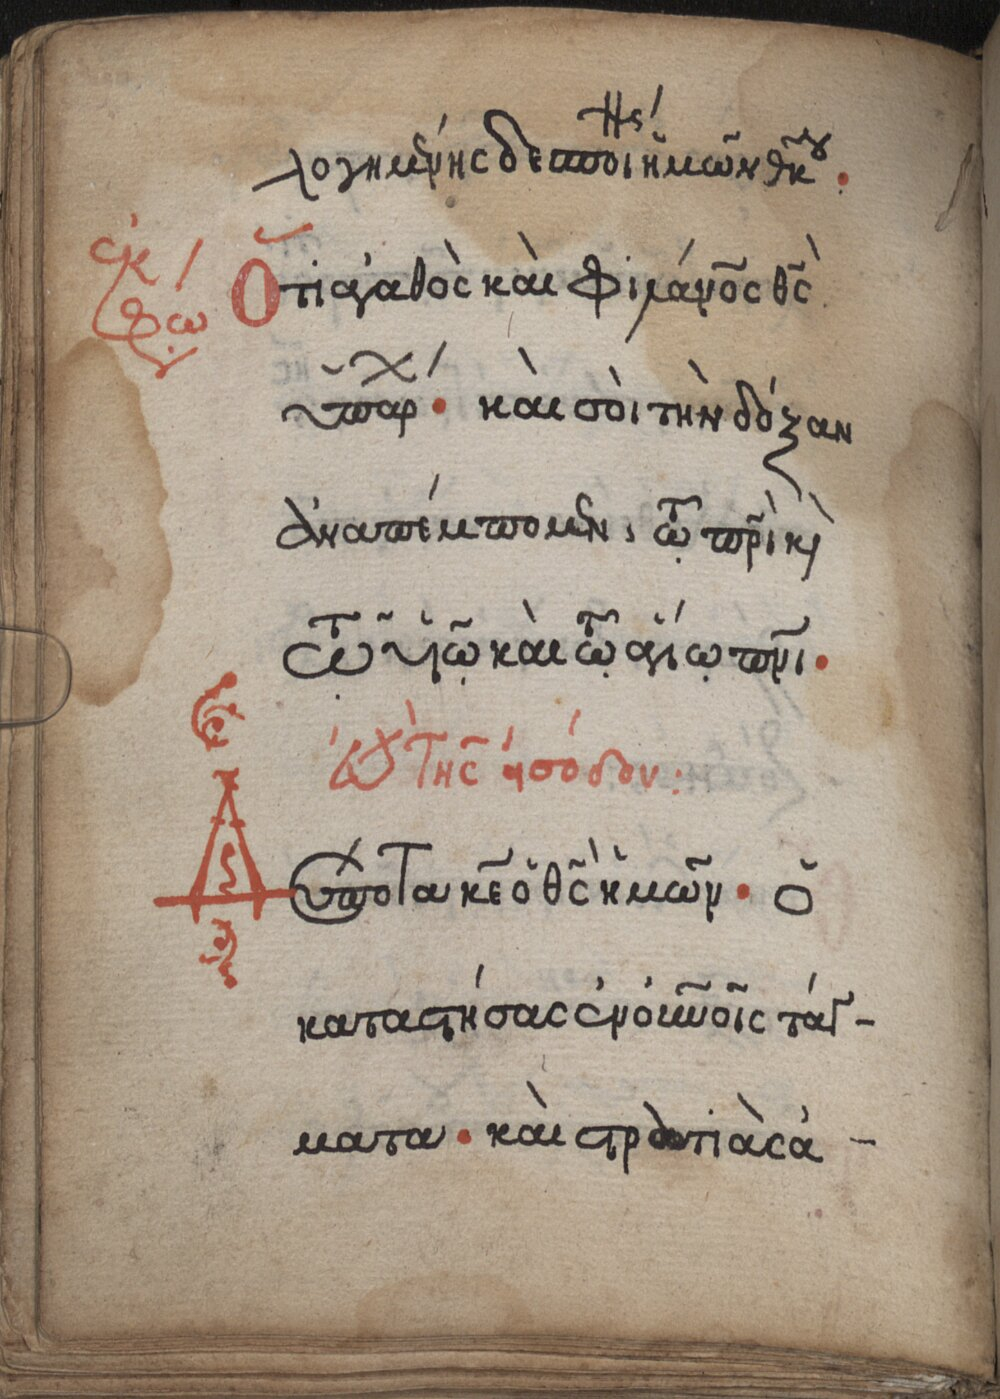 λογημένης δεσποίνης ἡμῶν θκου.
ἐκφώ
Ὅτι ἀγαθὸς καὶ φιλάνος θς
ὑπάρχ· καὶ σοὶ τὴν δόξαν
ἀναπέμπομεν, τῷ πρὶ κὶ
τῷ υἱῷ καὶ τῷ ἁγίῳ πνι·
εὐχὴ τῆς εἰσόδου:
Δέσποτα κε ὁ θς ἡμῶν· ὁ
καταστήσας ἐν οὐνοῖς τάγ-
ματα· καὶ στρατιὰς ἀ-